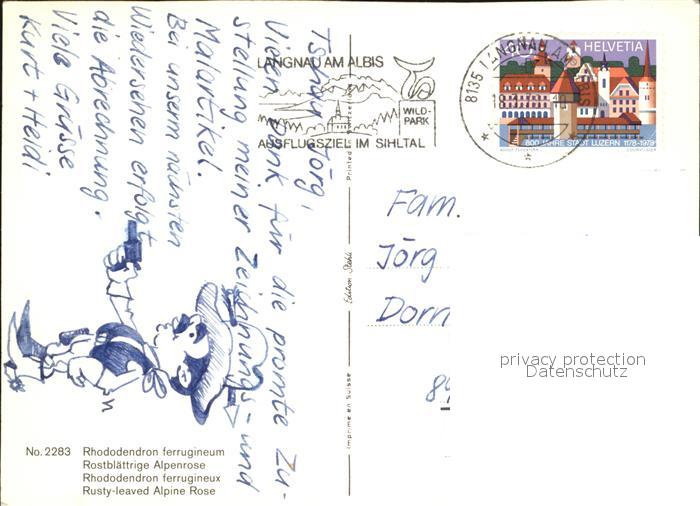 Tschau Jörg,
Vielen Dank für die promte Zu-
stellung meiner Zeichnungs- und
Malartikel.
Bei unserm nächsten
Wiedersehen erfolgt
die Abrechnung.
Viele Grüsse
Kurt + Heidi
LANGNAU AM ALBIS
WILD-
PARK
AUSFLUGSZIEL IM SIHLTAL
8135 LANGNAU AM ALBIS
HELVETIA
800 JAHRE STADT LUZERN 1178-1978
Fam.
Jörg
Dorn
privacy protection
Datenschutz
Edition Stehli
Imprimé en Suisse
No. 2283 Rhododendron ferrugineum
Rostblättrige Alpenrose
Rhododendron ferrugineux
Rusty-leaved Alpine Rose